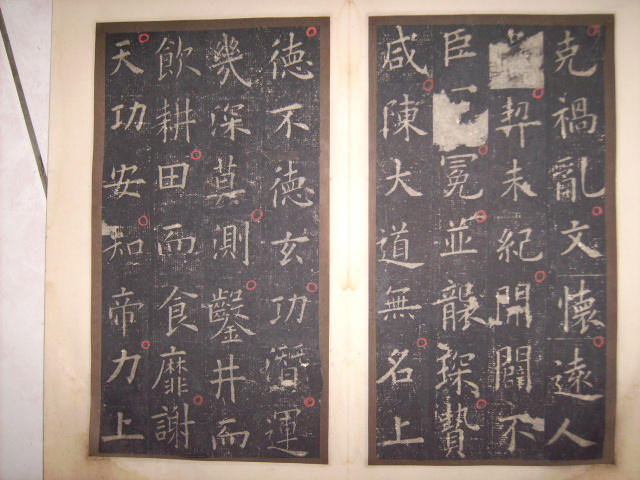 克禍亂文懷遠人
契未紀開闢不
臣冕並襲琛贄
咸陳大道無名上
德不德玄功潛運
幾深莫測鑿井而
飲耕田而食靡謝
天功安知帝力上